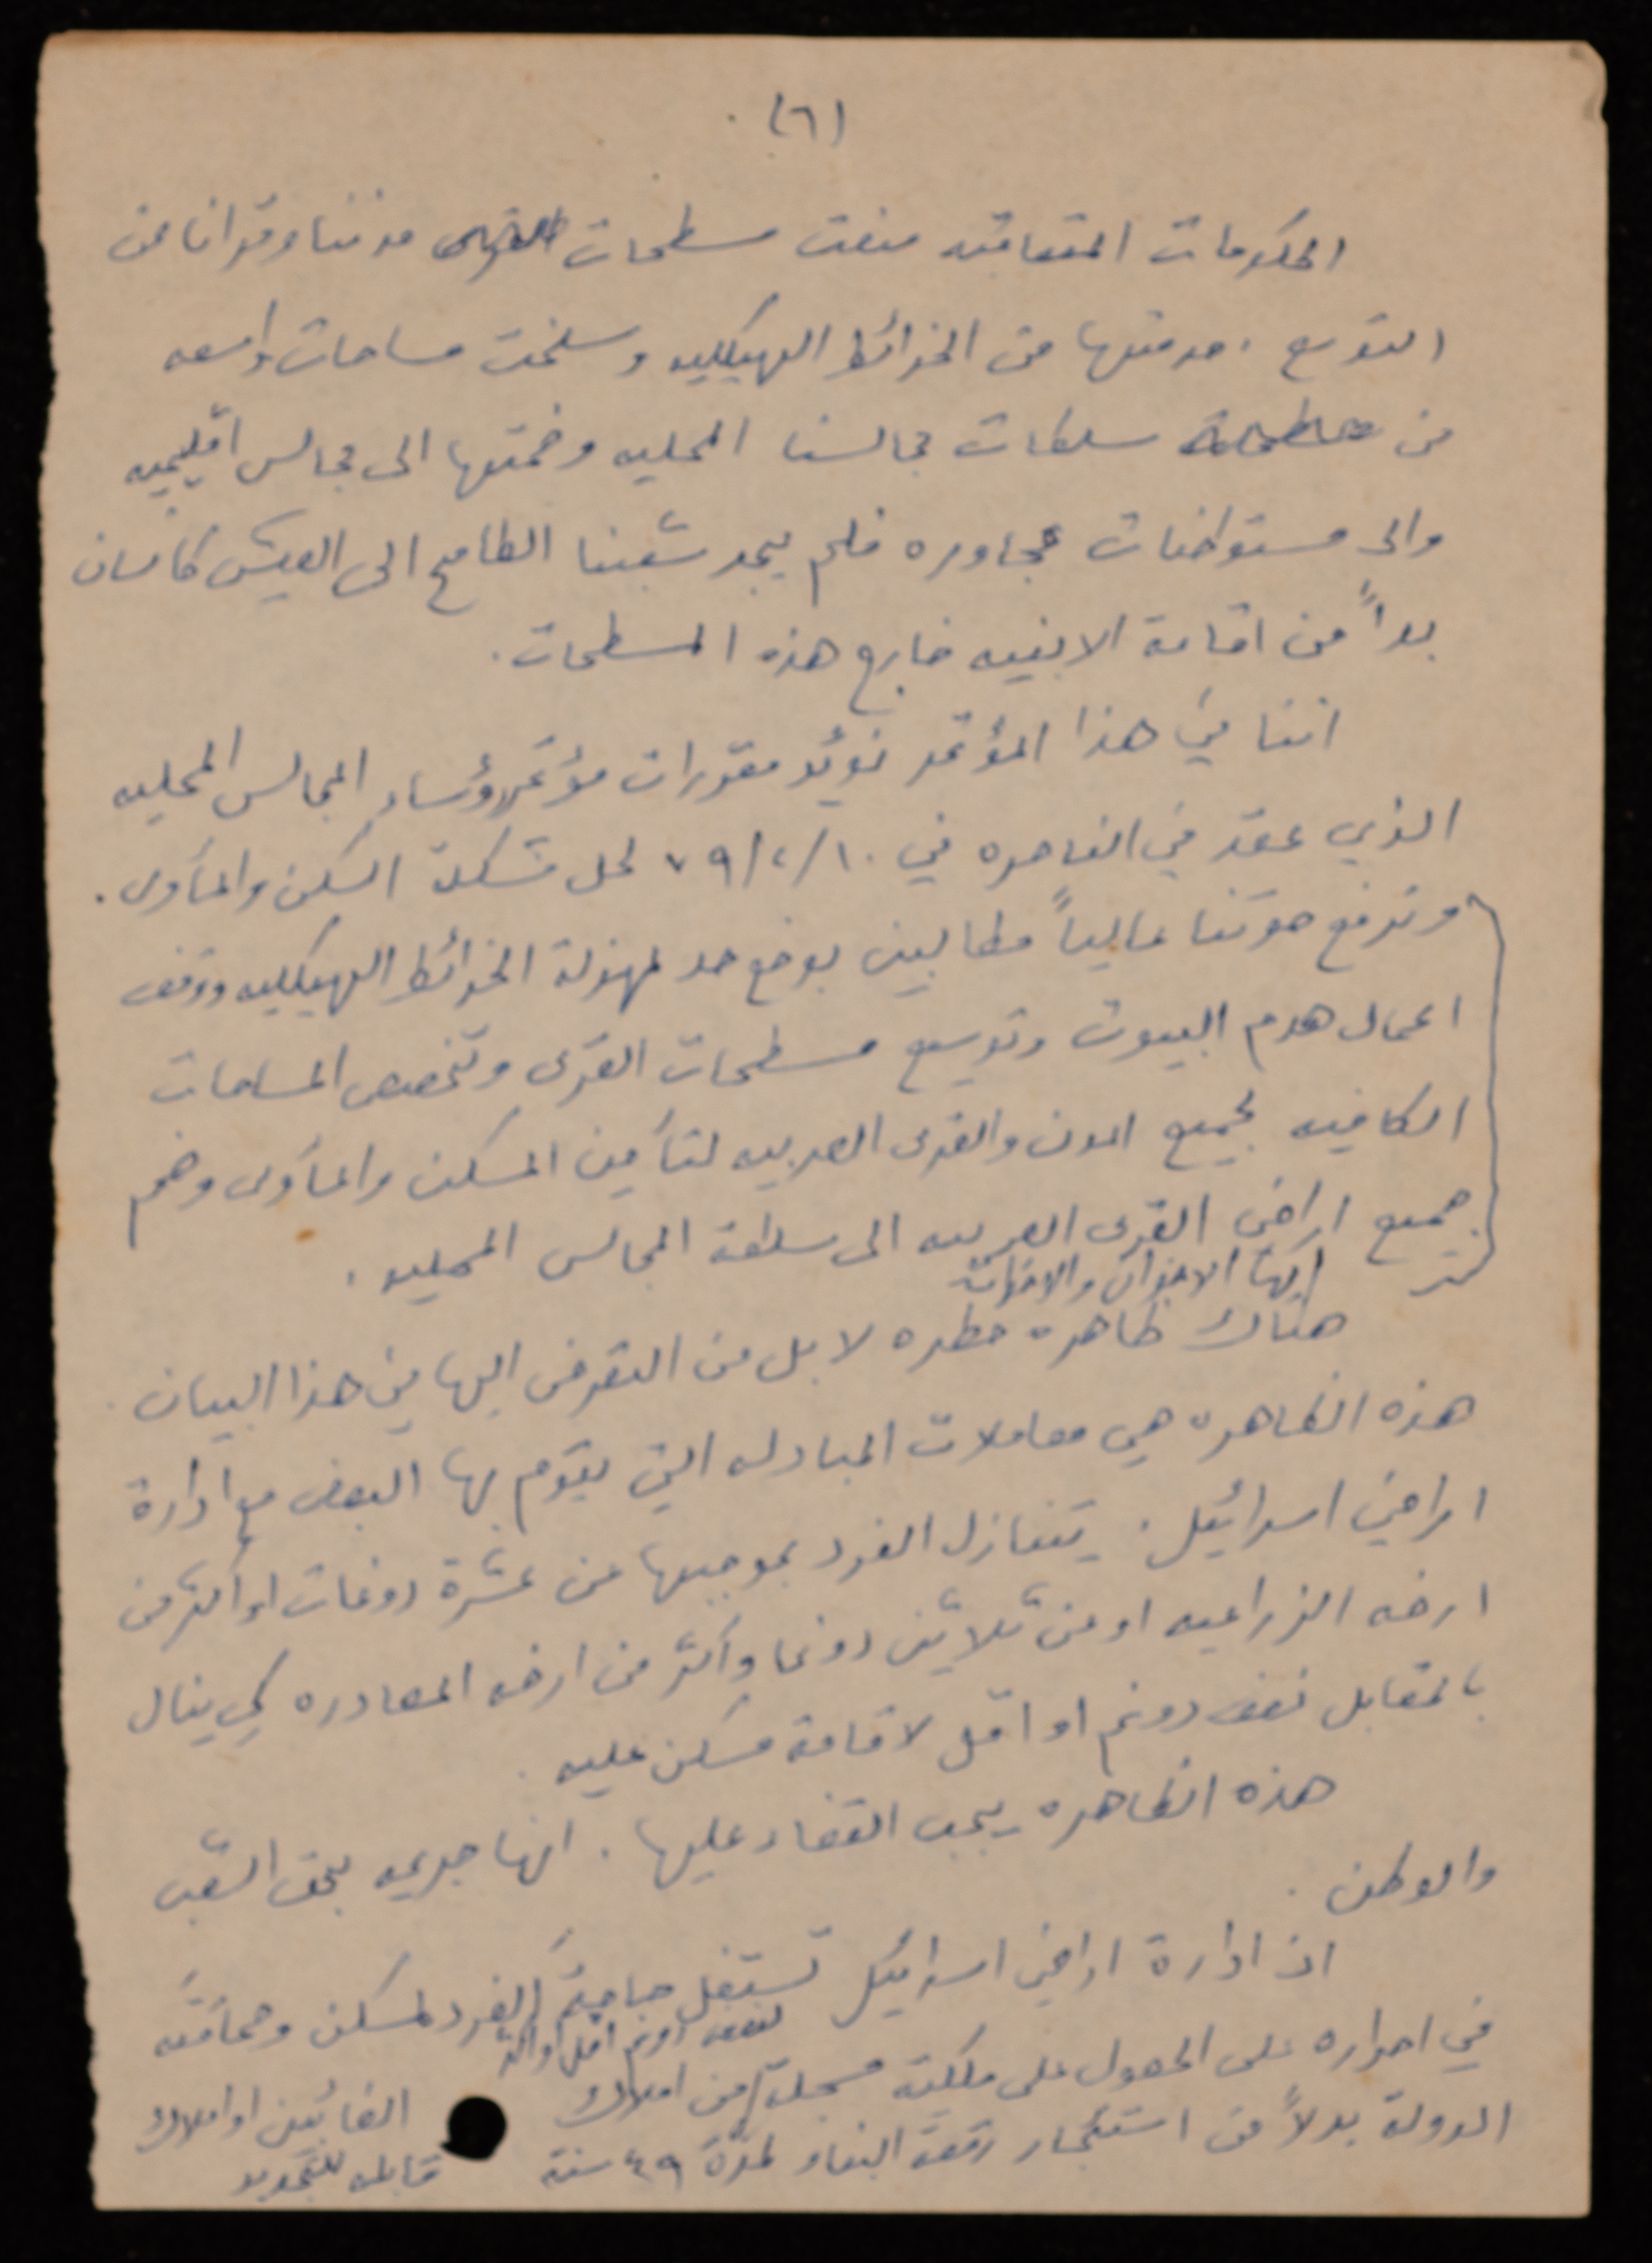 (٦)
الحكومات المتعاقبه منعت مسطحات القرى مدننا وقرانا من
التوسع. حرمتها من الخرائط الهيكليه وسلخت مساحات واسعه
من سلطات مجالسنا المحليه وضمتها الى مجالس اقليميه
والى مستوطنات مجاوره فلم يجد شعبنا الطامح الى العيش كانسان
بداً من اقامة الابنيه خارج هذه المسطحات.
اننا في هذا المؤتمر نؤيد مقررات مؤتمر رؤساء المجالس المحليه
الذي عقد في الناصره في ٧٩/٢/١٠ لحل مشكلة السكن والمأوى.
ونرفع صوتنا عالياً مطالبين بوضع حد لمهزلة الخرائط الهيكليه ووقف
اعمال هدم البيوت وتوسيع مسطحات القرى وتخصيص المساحات
الكافيه لجميع المدن والقرى العربيه لتأمين المسكن والمأوى وضم
جميع اراضي القرى العربيه الى سلطة المجالس المحليه.
ايها الاخوان والاخوات
هناك ظاهره خطره لا بل من التعرض اليها في هذا البيان.
هذه الظاهره هي معاملات المبادله التي يقوم بها البعض مع ادارة
اراضي اسرائيل. يتنازل الفرد بموجبها عن عشرة دونمات او اكثر من
ارضه الزراعيه او عن ثلاثين دونما واكثر من ارضه المصادره كي ينال
بالمقابل نصف دونم او اقل لاقامة مسكن عليه.
هذه الظاهره يجب القضاء عليها. انها جريمه بحق الشعب
والوطن.
ان ادارة اراضي اسرائيل تستغل حاجة الفرد لمسكن وحماقته
لنصف دونم اقل او اكثر
في اصراره على الحصول على ملكية مسجلة من املاك الغائبين او املاك
الدولة بدلاً من استئجار رقعة البناء لمدة ٤٩ سنة قابله للتجديد